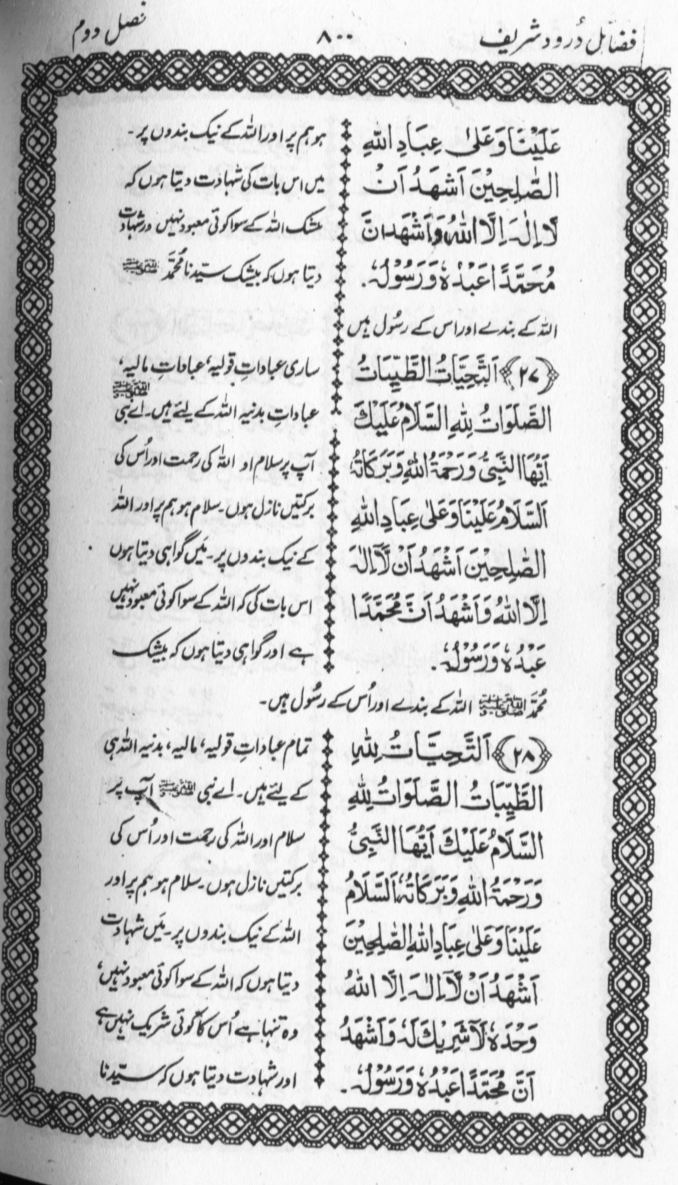 فضائل دُرود شریف
۸۰۰
فصل دوم
عَلَيْنَا وَعَلىٰ عِبَادِ اللهِ
الصّٰلِحِيْنَ اَشْهَدُ اَنْ
لَّا اِلٰهَ اِلَّا اللهُ وَاَشْهَدُ اَنَّ
مُحَمَّدًا عَبْدُهٗ وَرَسُوْلُهٗ.
ہو ہم پر اور اللہ کے نیک بندوں پر۔
میں اس بات کی شہادت دیتا ہوں کہ
بیشک اللہ کے سوا کوئی معبود نہیں اور شہادت
دیتا ہوں کہ بیشک سیّدنا مُحمَّد ﷺ
اللہ کے بندے اور اس کے رسُول ہیں
﴿۲۷﴾ اَلتَّحِيَّاتُ الطَّيِّبَاتُ
الصَّلَوَاتُ لِلّٰهِ السَّلَامُ عَلَيْكَ
اَيُّهَا النَّبِيُّ وَرَحْمَةُ اللهِ وَبَرَكَاتُهٗ
اَلسَّلَامُ عَلَيْنَا وَعَلٰى عِبَادِ اللهِ
الصّٰلِحِيْنَ اَشْهَدُ اَنْ لَّآ اِلٰهَ
اِلَّا اللهُ وَاَشْهَدُ اَنَّ مُحَمَّدًا
عَبْدُهٗ وَرَسُوْلُهٗ.
ساری عباداتِ قولیہ، عباداتِ مالیہ،
عباداتِ بدنیہ اللہ کے لیئے ہیں۔ اے نبی ﷺ
آپ پر سلام اور اللہ کی رحمت اور اُس کی
برکتیں نازل ہوں۔ سلام ہو ہم پر اور اللہ
کے نیک بندوں پر۔ مَیں گواہی دیتا ہوں
اس بات کی کہ اللہ کے سوا کوئی معبود نہیں
ہے اور گواہی دیتا ہوں کہ بیشک
مُحمَّد ﷺ اللہ کے بندے اور اُس کے رسُول ہیں۔
﴿۲۸﴾ اَلتَّحِيَّاتُ لِلّٰهِ
الطَّيِّبَاتُ الصَّلَوَاتُ لِلّٰهِ
السَّلَامُ عَلَيْكَ اَيُّهَا النَّبِيُّ
وَرَحْمَةُ اللهِ وَبَرَكَاتُهٗ اَلسَّلَامُ
عَلَيْنَا وَعَلٰى عِبَادِ اللهِ الصّٰلِحِيْنَ
اَشْهَدُ اَنْ لَّآ اِلٰهَ اِلَّا اللهُ
وَحْدَهٗ لَا شَرِيْكَ لَهٗ وَاَشْهَدُ
اَنَّ مُحَمَّدًا عَبْدُهٗ وَرَسُوْلُهٗ.
تمام عباداتِ قولیہ، مالیہ، بدنیہ اللہ ہی
کے لیئے ہیں۔ اے نبی ﷺ آپ پر
سلام اور اللہ کی رحمت اور اُس کی
برکتیں نازل ہوں۔ سلام ہو ہم پر اور
اللہ کے نیک بندوں پر۔ مَیں شہادت
دیتا ہوں کہ اللہ کے سوا کوئی معبود نہیں،
وہ تنہا ہے اُس کا کوئی شریک نہیں ہے
اور شہادت دیتا ہوں کہ سیّدنا